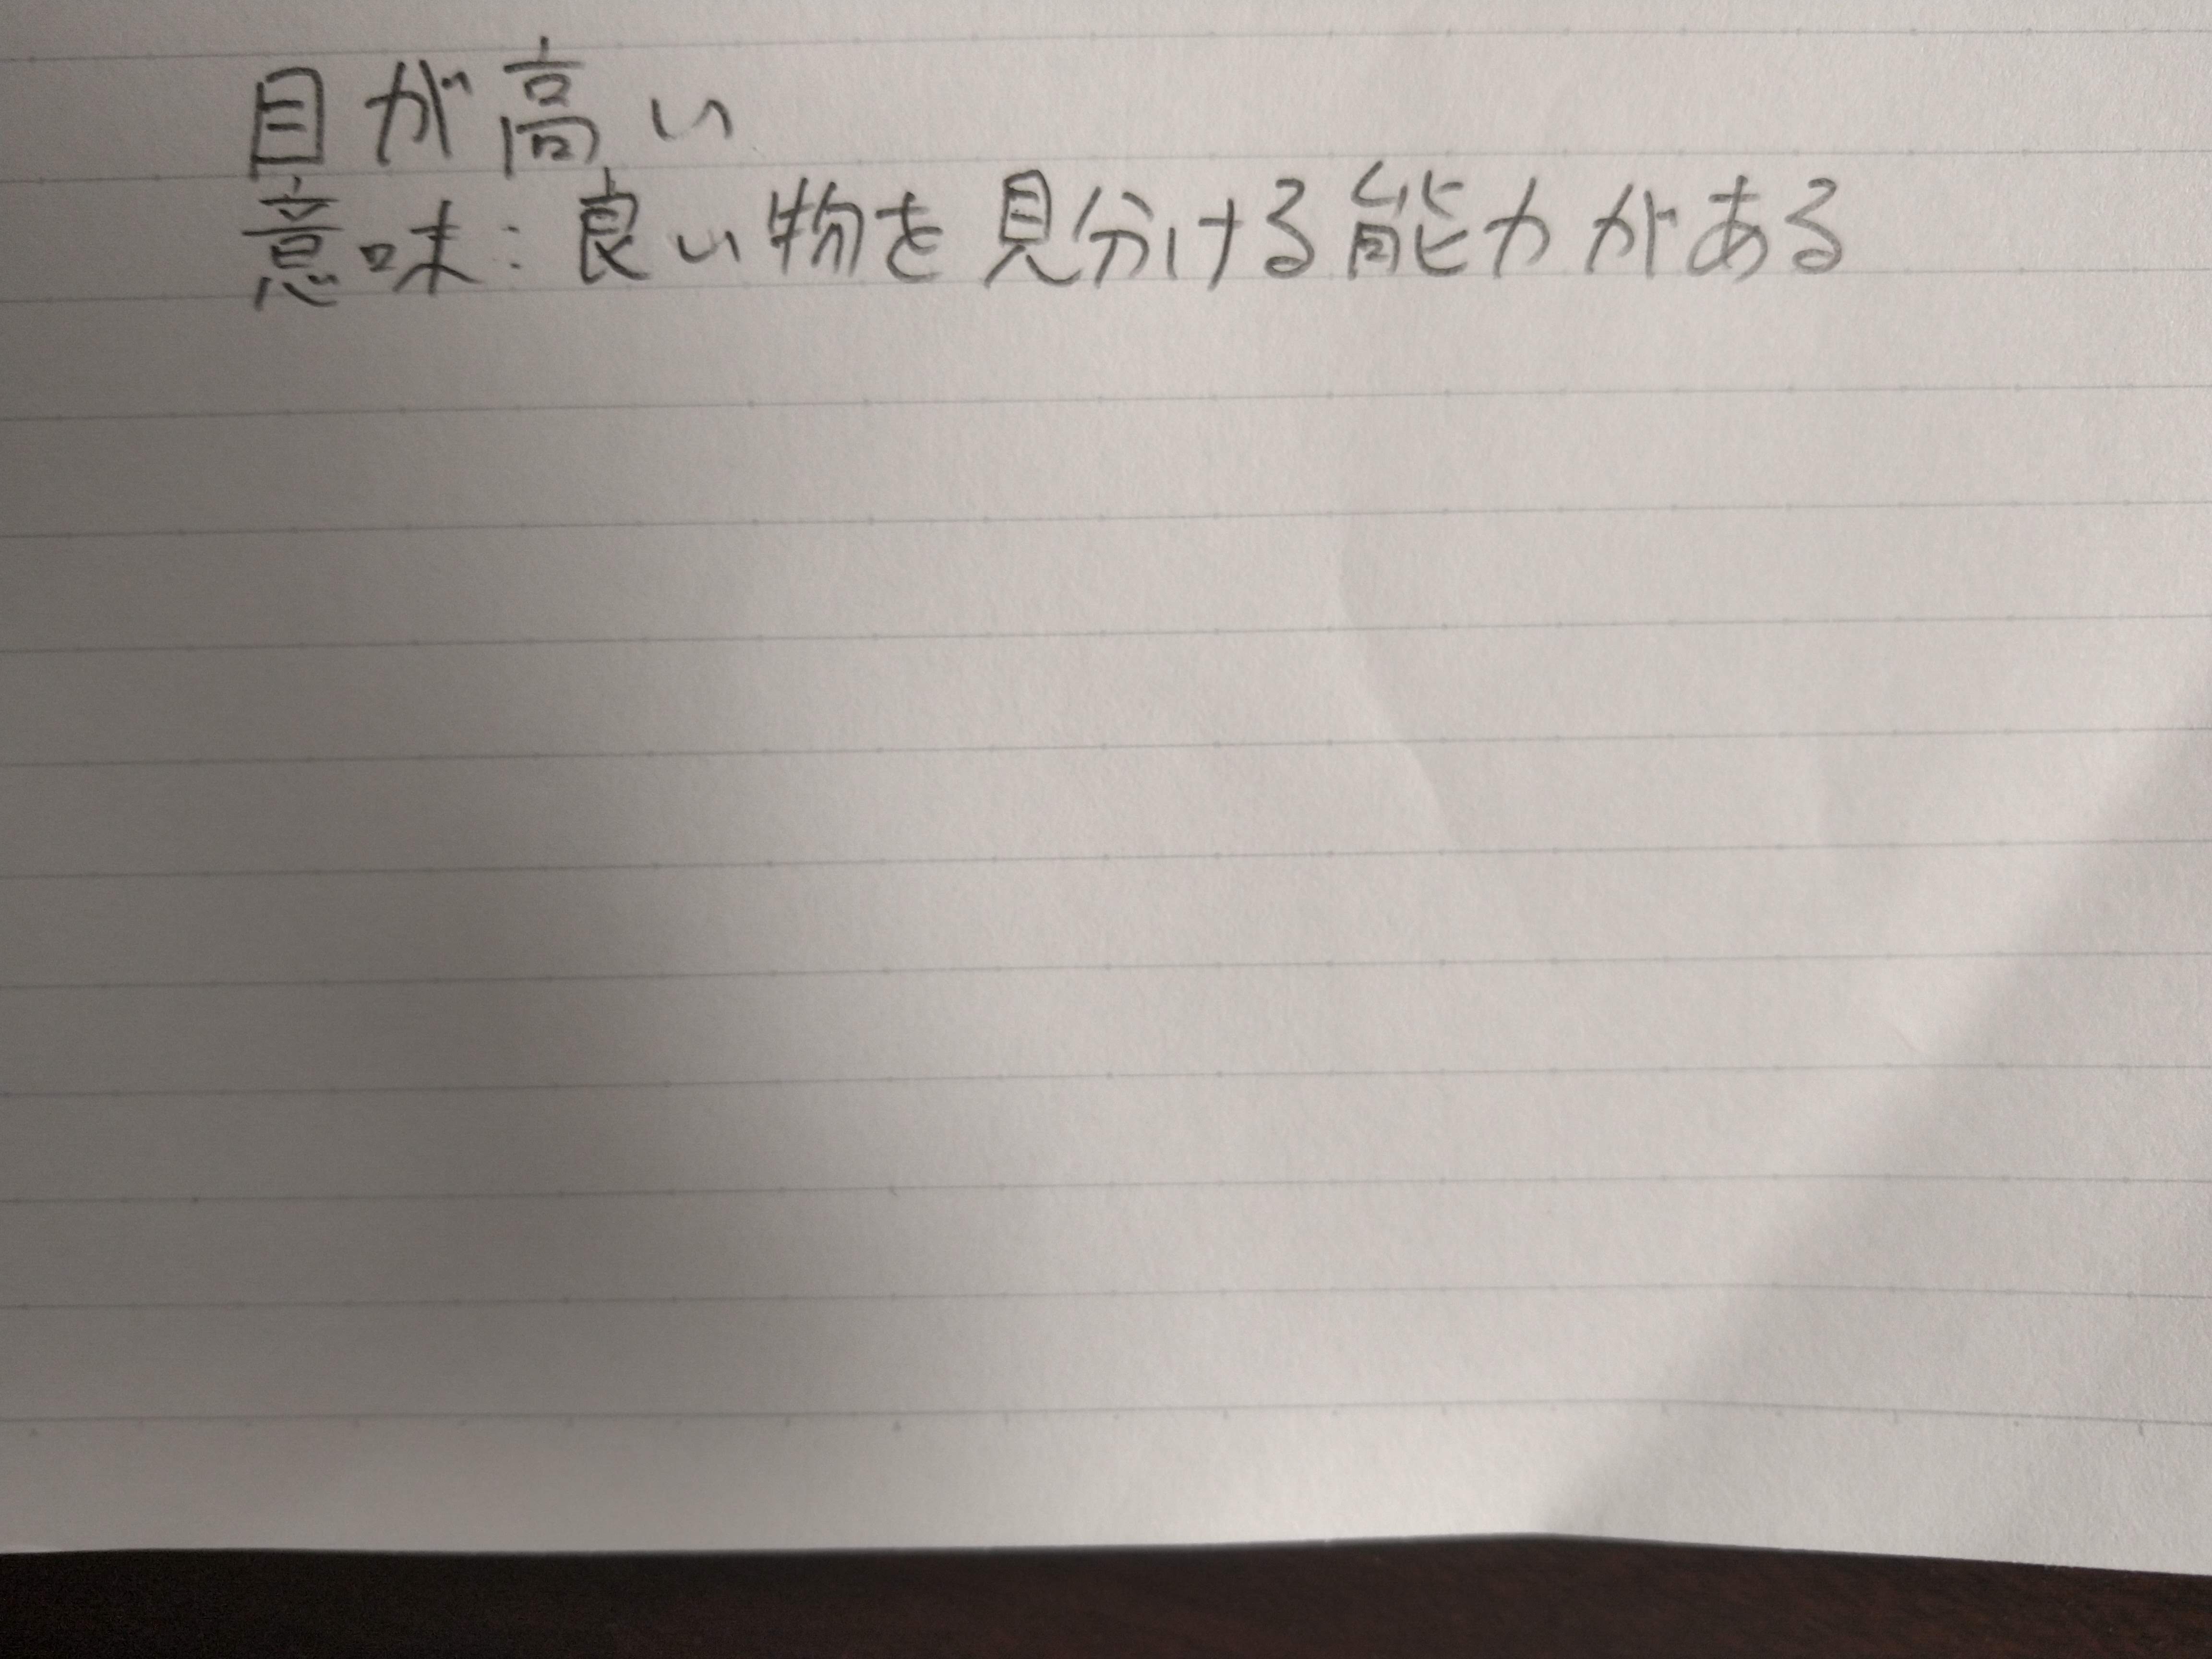 目が高い
意味:良い物を見分ける能力がある